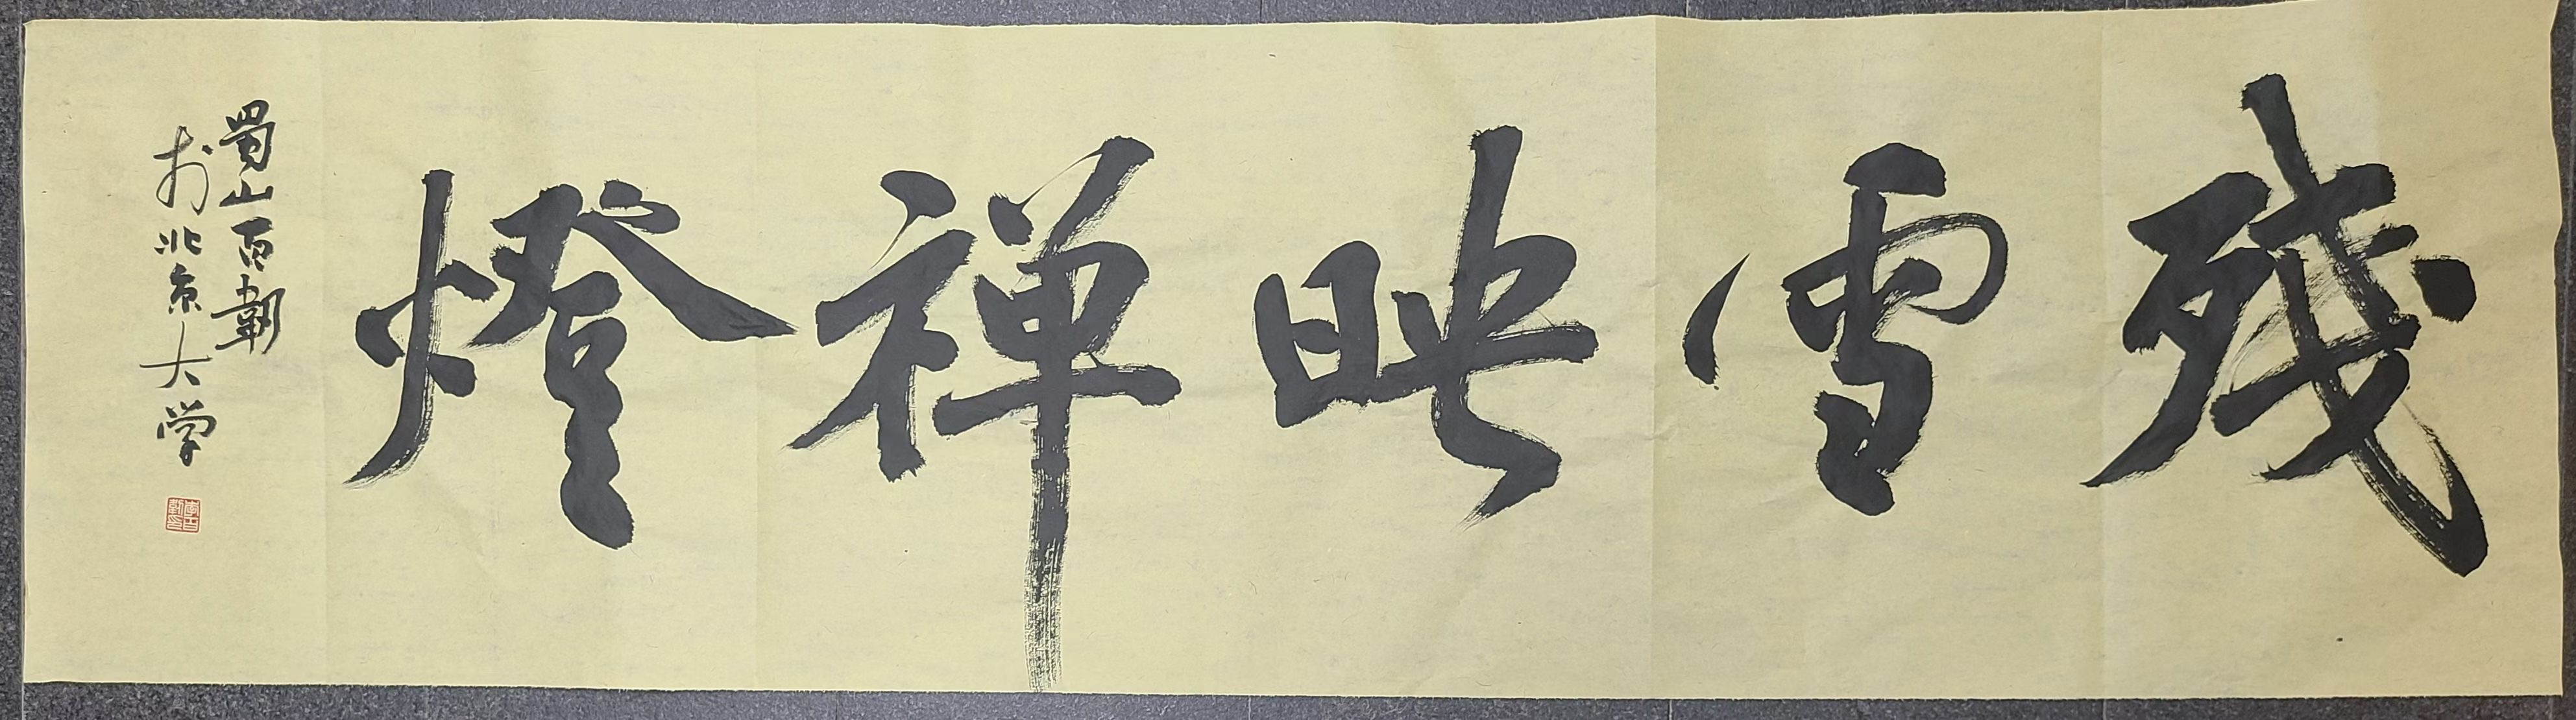 残雪映禅燈
蜀山百韌
於北京大学